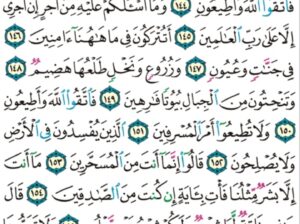 فَاتَّقُوا اللَّهَ وَأَطِيعُونِ ١٤٤ وَمَا أَسْأَلُكُمْ عَلَيْهِ مِنْ أَجْرٍ إِنْ أَجْرِيَ
إِلَّا عَلَىٰ رَبِّ الْعَالَمِينَ ١٤٥ أَتُتْرَكُونَ فِي مَا هَاهُنَا آمِنِينَ ١٤٦
فِي جَنَّاتٍ وَعُيُونٍ ١٤٧ وَزُرُوعٍ وَنَخْلٍ طَلْعُهَا هَضِيمٌ ١٤٨
وَتَنْحِتُونَ مِنَ الْجِبَالِ بُيُوتًا فَارِهِينَ ١٤٩ فَاتَّقُوا اللَّهَ وَأَطِيعُونِ
١٥٠ وَلَا تُطِيعُوا أَمْرَ الْمُسْرِفِينَ ١٥١ الَّذِينَ يُفْسِدُونَ فِي الْأَرْضِ
وَلَا يُصْلِحُونَ ١٥٢ قَالُوا إِنَّمَا أَنْتَ مِنَ الْمُسَحَّرِينَ ١٥٣ مَا أَنْتَ
إِلَّا بَشَرٌ مِثْلُنَا فَأْتِ بِآيَةٍ إِنْ كُنْتَ مِنَ الصَّادِقِينَ ١٥٤ قَالَ